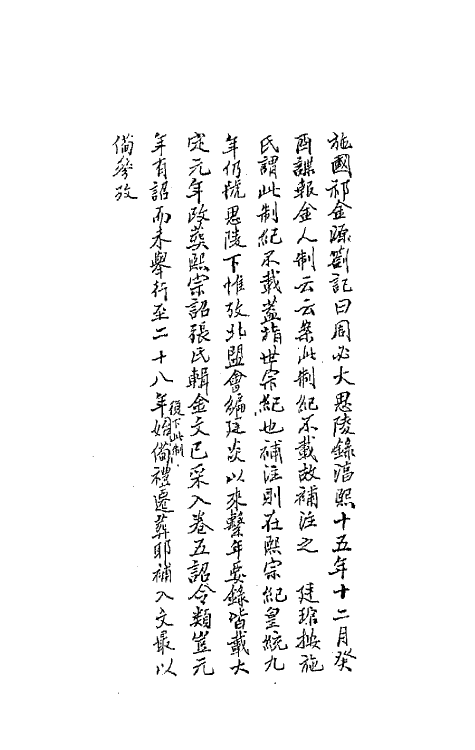 施國祁金源劄記曰周必大思陵錄淳熙十五年十二月癸
酉諜報金人制云云案此制紀不載故補注之　廷琯按施
氏謂此制紀不載蓋指世宗紀也補注則在熙宗紀皇統九
年仍號思陵下惟攷北盟會編建炎以來繫年要錄皆載大
定元年改葬熙宗詔張氏輯金文已采入卷五詔令類豈元
年有詔而未舉行至二十八年復下此制始備禮遷葬耶補入文最以
備參攷